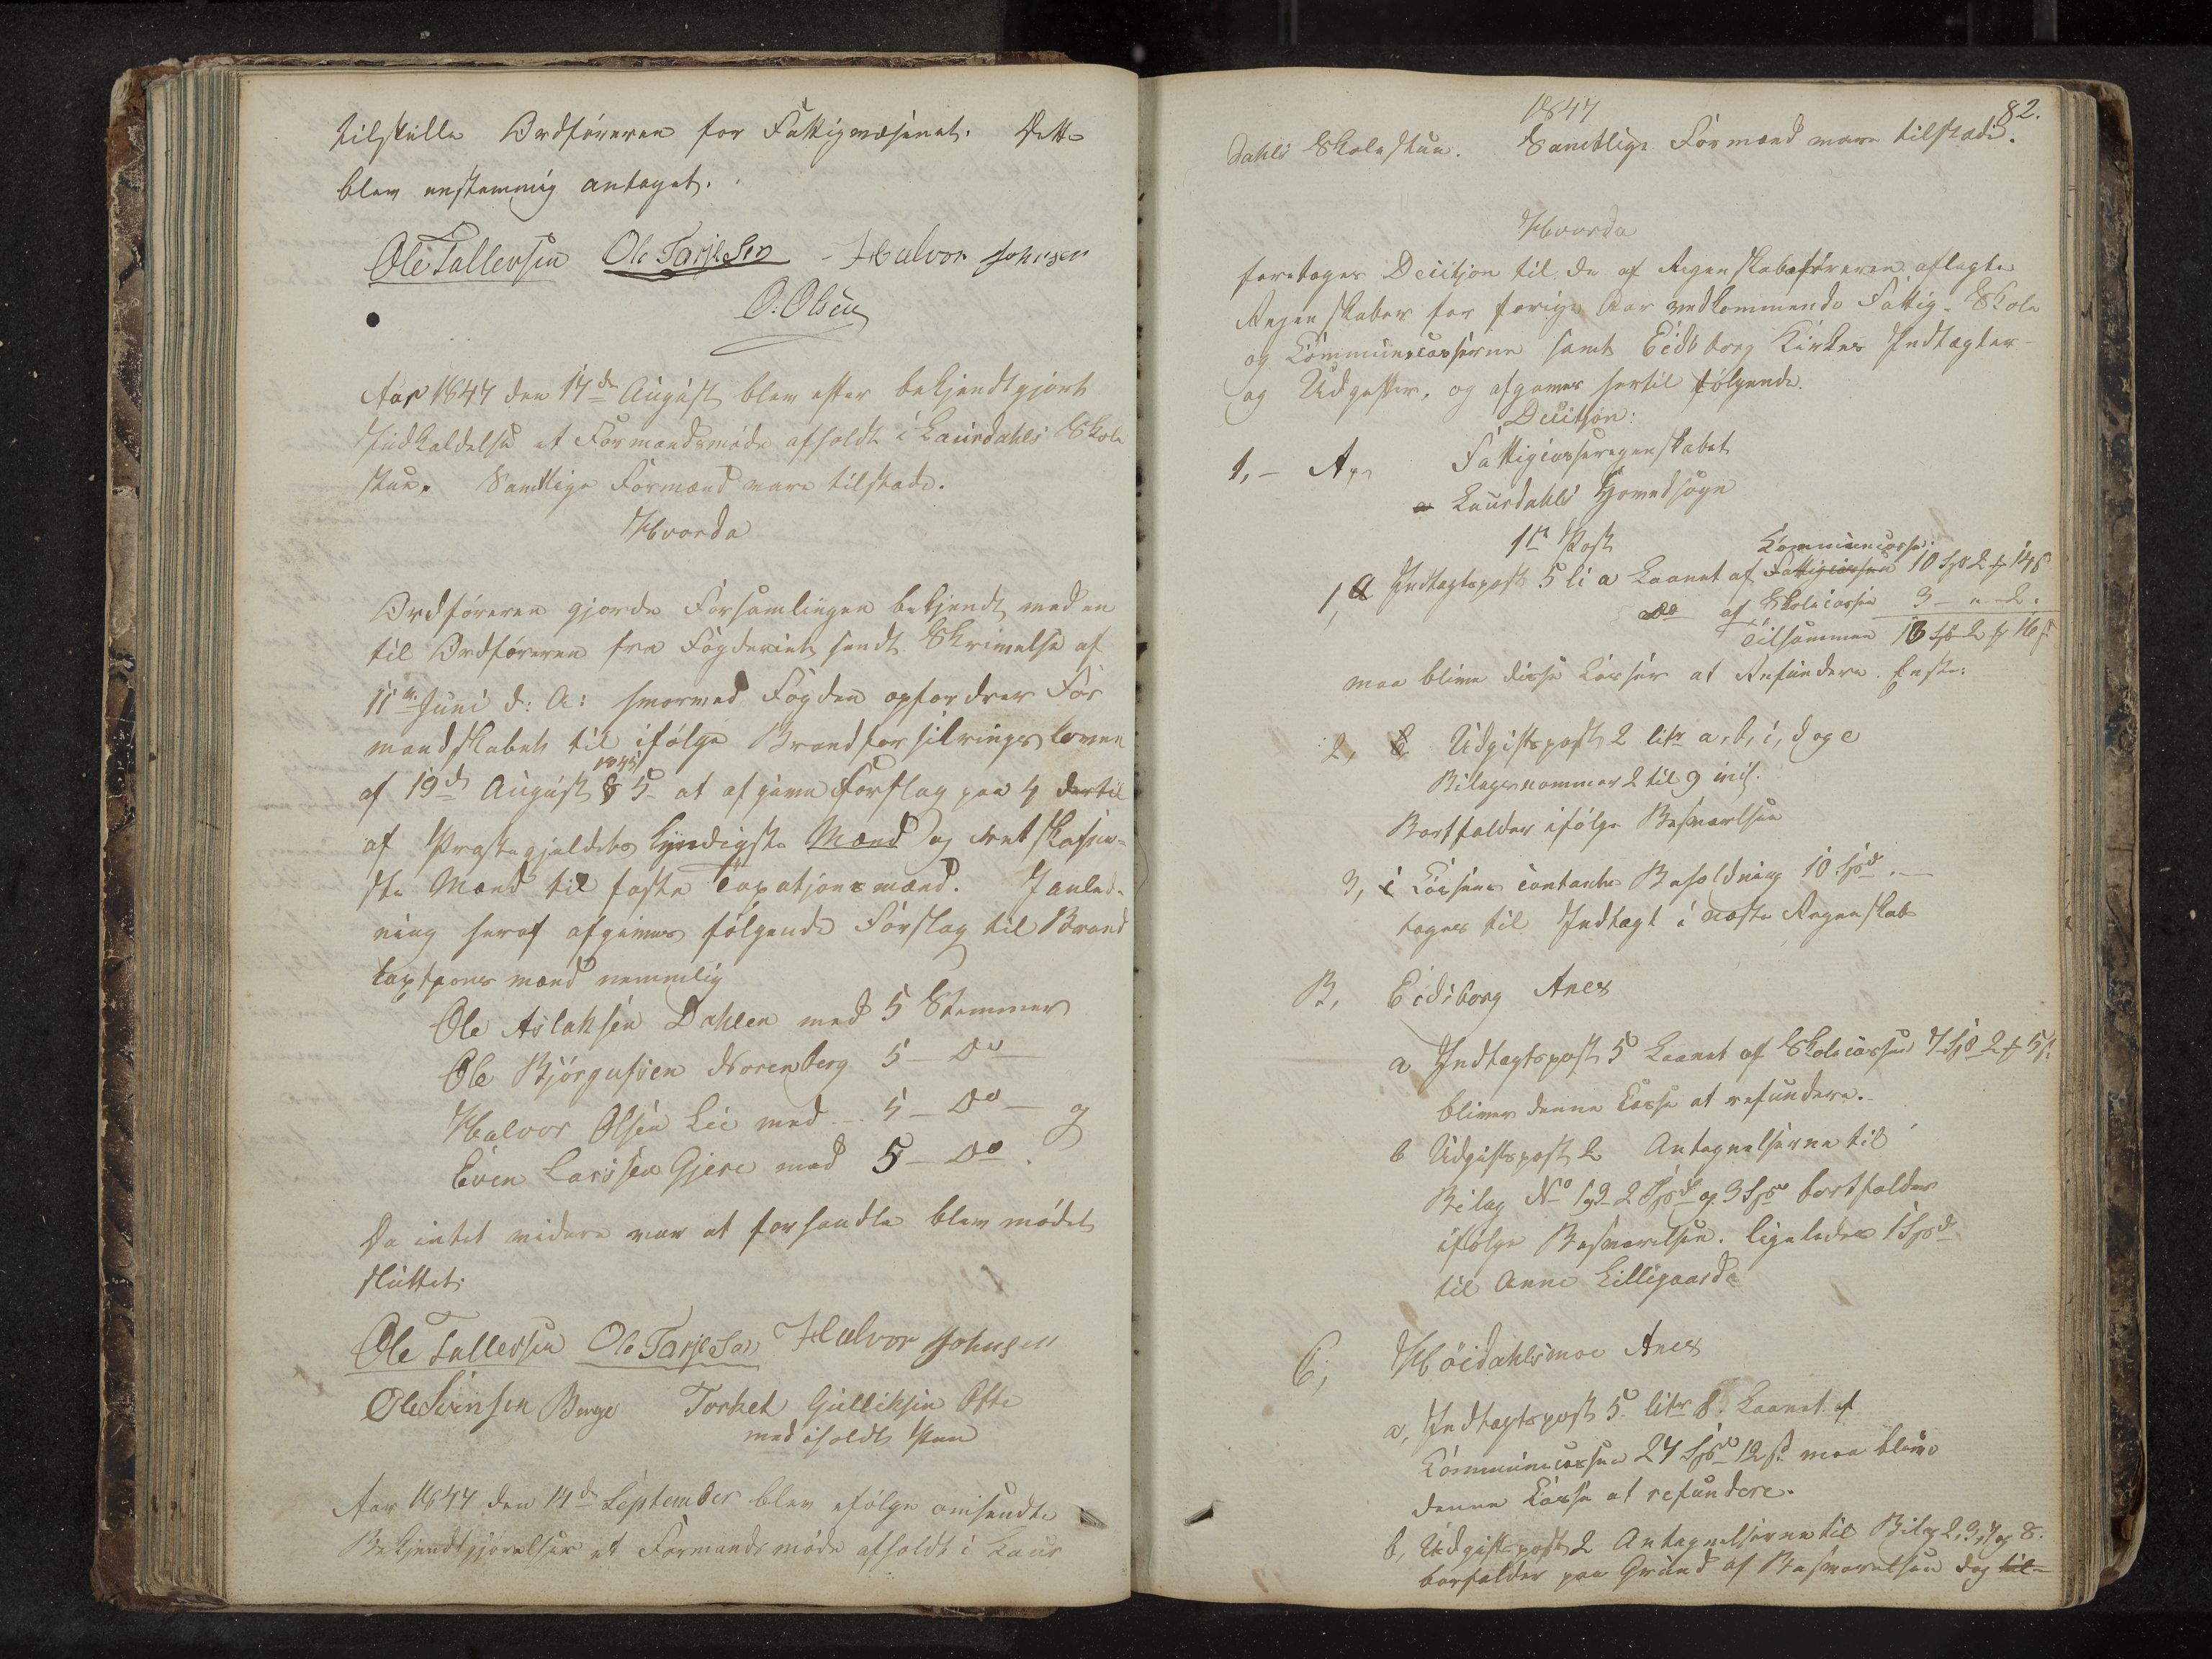 tilstille Ordføreren for Fattigvæsenet. Dette
blev enstemmig antaget.
Ole Tallevsen Ole Tarjeisen - Halvor Johnsen
O. Olsen
Aar 1847 den 14de August blev efter bekjendtgjort
Indkaldelse et Formandsmøde afholdt i Laurdahls Skole
stue. Samtlige Formænd vare tilstæde.
Hvorda
Ordføreren gjorde Forsamlingen bekjendt med en
til Ordføreren fra Fogderiet sendt Skrivelse af
11te Juni d: A: hvorved Fogden opfordrer For
mandskabet til ifølge Brandforsikringsloven
af 19de August 1845 § 5 at afgive Forslag paa 4 dertil
af Præstegjeldets kyndigste Mænd og retskafne-
ste Mænd til faste Taxatjonsmænd. I anled-
ning heraf afgives følgende Forslag til Brand
taxtjons mænd nemmlig
Ole Aslaksen Dahlen med 5 Stemmer
Ole Bjørgufsen Norenberg 5 - Do -
Halvor Olsen Lie med - 5 - Do - og
Even Larssen Gjere med 5 - Do.
Da intet videre var at forhandle blev mødet
sluttet.
Ole Tallevsen Ole Tarjeisen Halvor Johnsen
Ole Svensen Berge Torket Gulliksen Ofte
med iholdt Pen
Aar 1847 den 14de September blev efølge omsendte
Bekjendtgjørelser et Formandsmøde afholdt i Laur
1847
82.
dahls Skolestue. Samtlige Formænd vare tilstæde.
Hvorda
foretages Decitsjon til de af Regenskabsføreren aflagte
Regenskaber for forige Aar vedkommende Fattig- Skole
og Communecasserne samt Eidsborg Kirkes Indtægter
og Udgifter, og afgaves hertil følgende.
Decitsjon:
1, - A, Fattigcasseregenskabet
a Laurdahls Hovedsogn
1ste Post
1, a Indtægtspost 5 li a Laanet af Fattigcassen Communecasse 10 Spd 2 # 14 s
Do af Skolecassen 3 - " - 2.
Tilsammen 13 Spd 2 # 16 s
maa blive disse Casser at Refundere.
2, b Udgiftspost 2 litr a, b, c, d og e
Bilagsnommer 2 til 9 incl.
Bortfalder ifølge Besvarelsen
3, c Cassens contante Beholdning 10 Spd. -
tages til Indtægt i næste Regenskab
B, Eidsborg Anex
a Indtægtspost 5 Laanet af Skolecassen 7 Spd 2 # 5 s
bliver denne Casse at refundere.
b Udgiftspost 2 Antegnelserne til
Bilag No 1 og 2 2 Spd og 3 Spd bortfalder
ifølge Besvarelsen. ligeledes 1 Spd
til Anne Lilligaarde
C, Høidahlsmoe Anex
a, Indtægtspost 5 litr 8. Laanet af
Communecassen 24 Spd 12 s. maa blive
denne Casse at refundere.
b, Udgiftspost 2 Antegnelserne til Bilag 2, 3, 7 og 8.
borfalder paa Grund af Besvarelsen dog til-